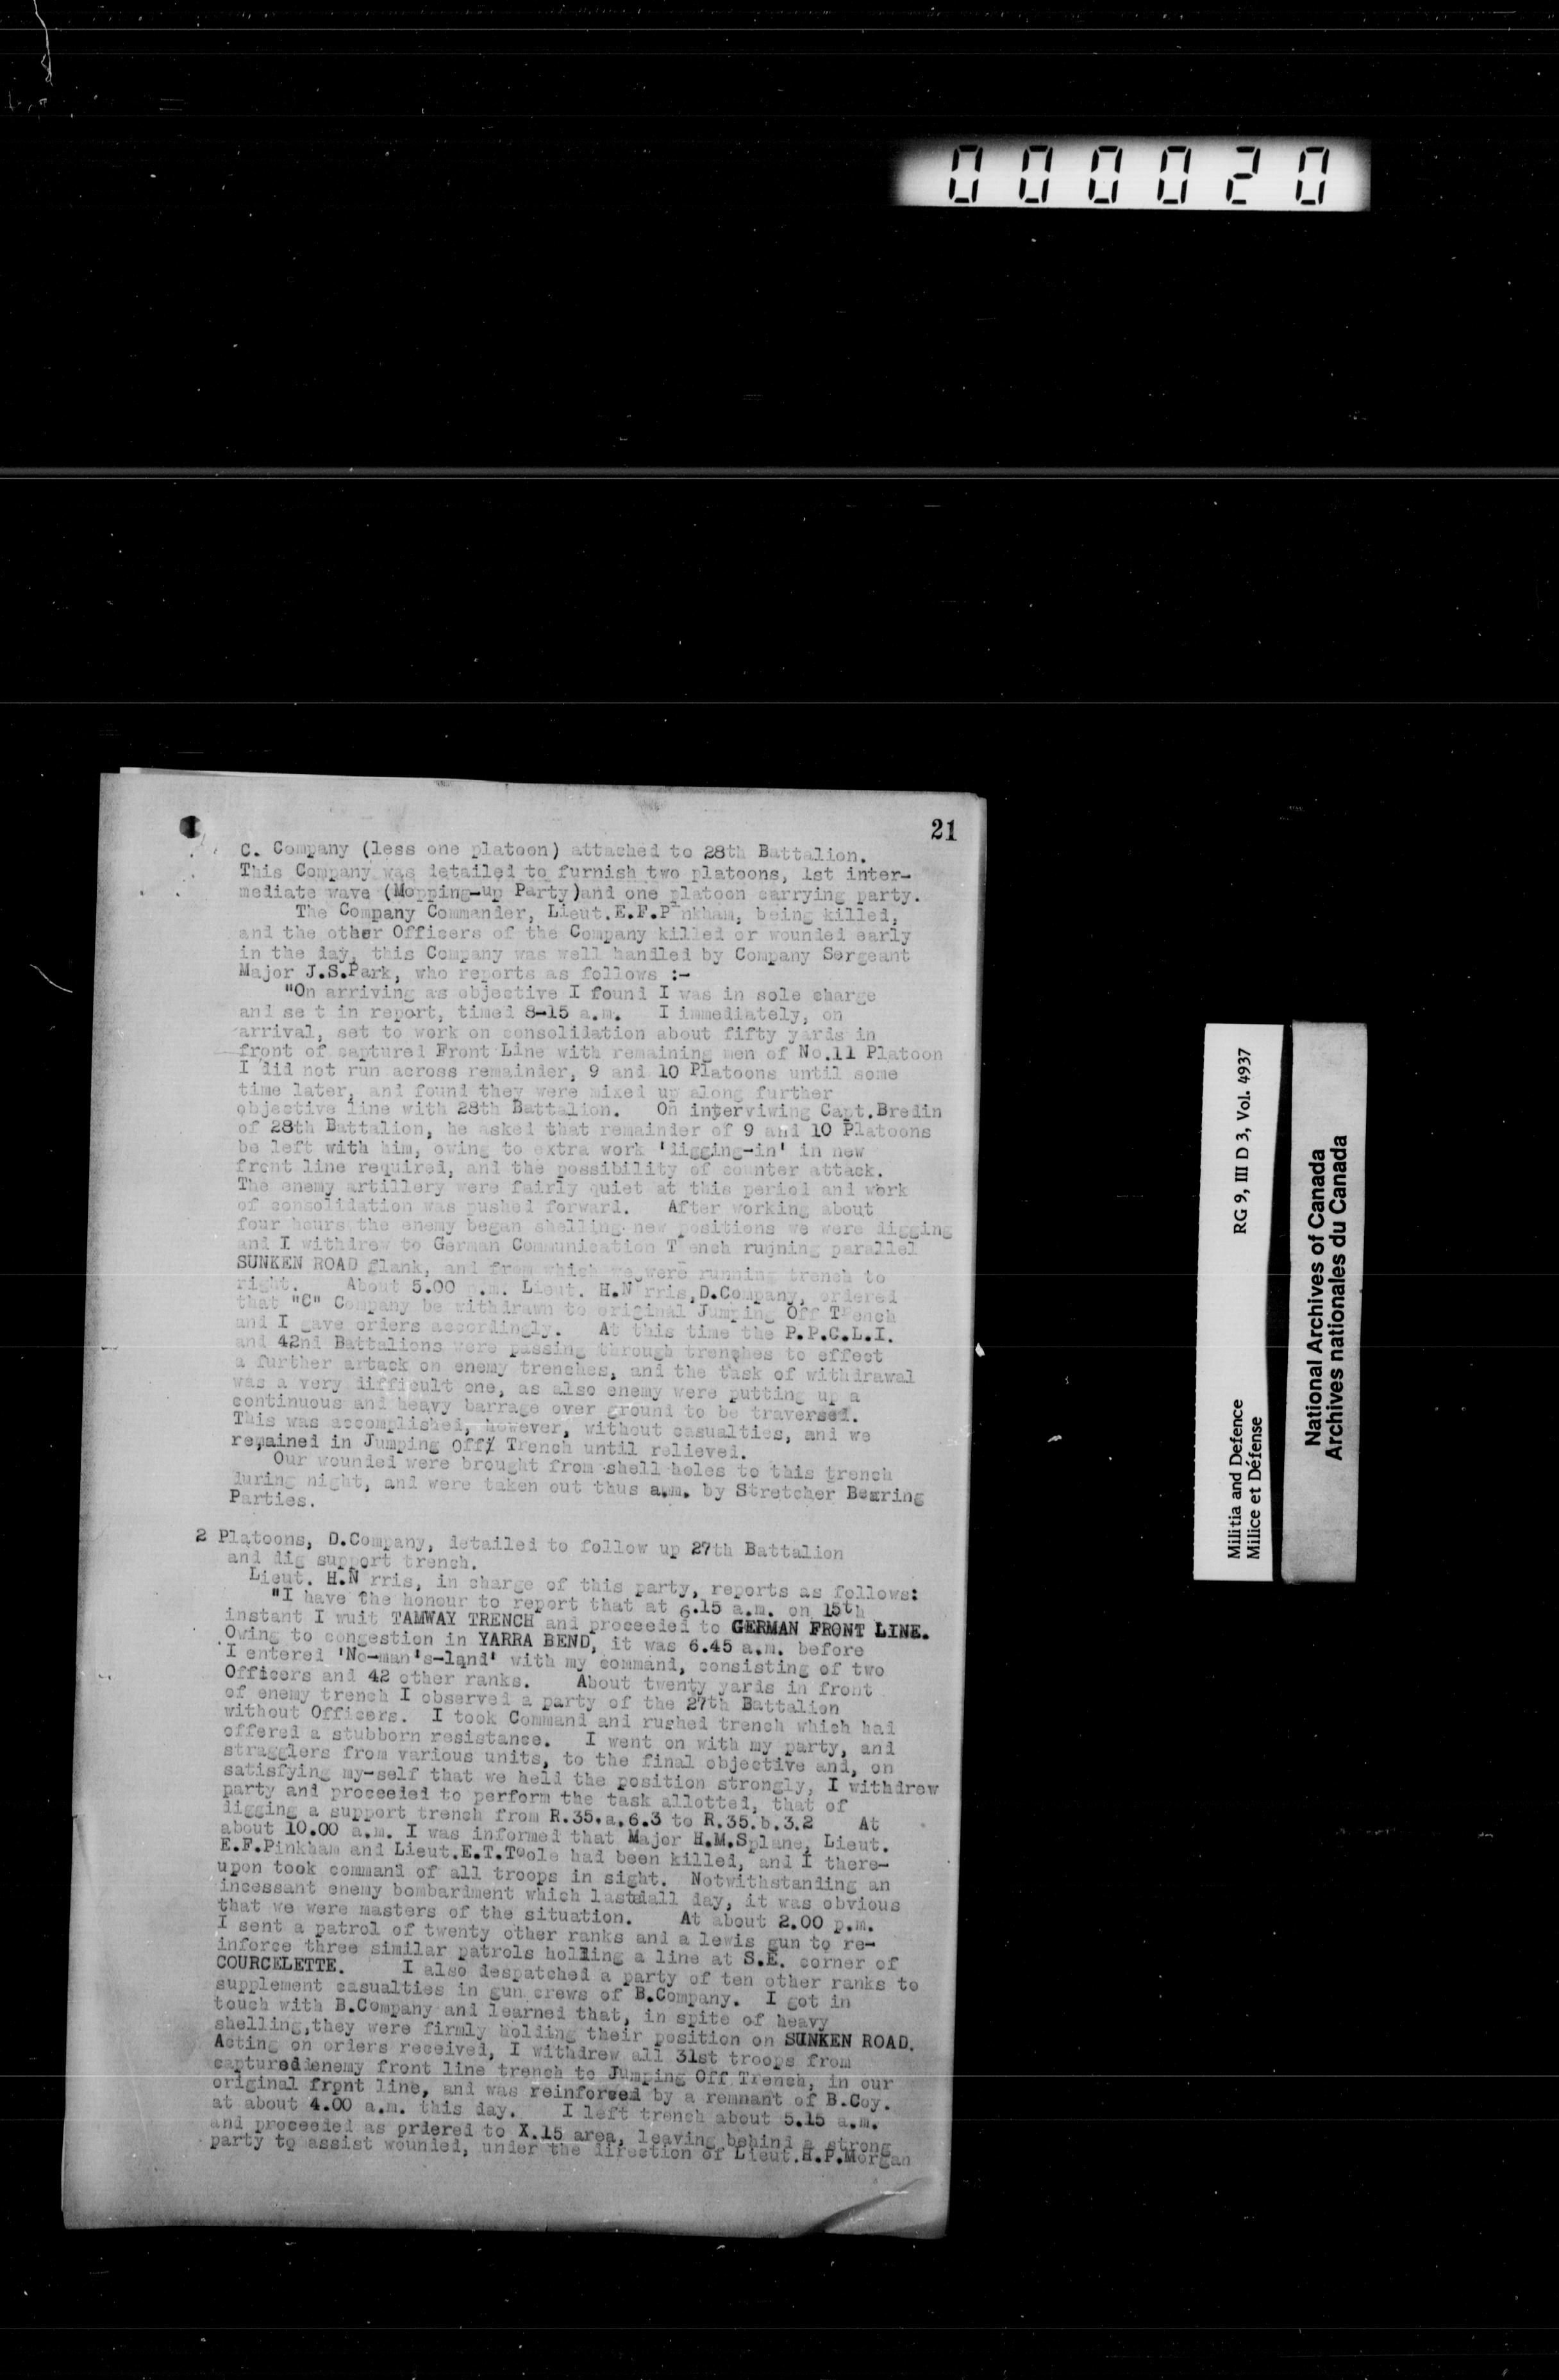 000020
21
C. Company (less one platoon) attached to 28th Battalion.
This Company was detailed to furnish two platoons, 1st inter-
mediate wave (Mopping-up Party)and one platoon carrying party.
The Company Commander, Lieut.E.F.P nkham, being killed,
and the other Officers of the Company killed or wounded early
in the day, this Company was well handled by Company Sergeant
Major J.S.Park, who reports as follows :-
"On arriving as objective I found I was in sole charge
and se t in report, timed 8-15 a.m. I immediately, on
arrival, set to work on consolidation about fifty yards in
front of captured Front Line with remaining men of No.11 Platoon
I did not run across remainder, 9 and 10 Platoons until some
time later, and found they were mixed up along further
objective line with 28th Battalion. On interviwing Capt.Bredin
of 28th Battalion, he asked that remainder of 9 and 10 Platoons
be left with him, owing to extra work 'digging-in' in new
front line required, and the possibility of counter attack.
The enemy artillery were fairly quiet at this period and work
of consolidation was pushed forward. After working about
four hours the enemy began shelling new positions we were digging
and I withdrew to German Communication T ench running parallel
SUNKEN ROAD flank, and from which we were running trench to
right. About 5.00 p.m. Lieut. H.N rris,D.Company, ordered
that "C" Company be withdrawn to original Jumping Off Trench
and I gave orders accordingly. At this time the P.P.C.L.I.
and 42nd Battalions were passing through trenches to effect
a further artack on enemy trenches, and the task of withdrawal
was a very difficult one, as also enemy were putting up a
continuous and heavy barrage over ground to be traversed.
This was accomplished, however, without casualties, and we
remained in Jumping Off/ Trench until relieved.
Our wounded were brought from shell holes to this trench
during night, and were taken out thus a.m. by Stretcher Bearing
Parties.
2 Platoons, D.Company, detailed to follow up 27th Battalion
and dig support trench.
Lieut. H.N rris, in charge of this party, reports as follows:
"I have the honour to report that at 6.15 a.m. on 15th
instant I wuit TAMWAY TRENCH and proceeded to GERMAN FRONT LINE.
Owing to congestion in YARRA BEND, it was 6.45 a.m. before
I entered 'No-man's-land' with my command, consisting of two
Officers and 42 other ranks. About twenty yards in front
of enemy trench I observed a party of the 27th Battalion
without Officers. I took Command and rushed trench which had
offered a stubborn resistance. I went on with my party, and
stragglers from various units, to the final objective and, on
satisfying my-self that we held the position strongly, I withdrew
party and proceeded to perform the task allotted, that of
digging a support trench from R.35.a.6.3 to R.35.b.3.2 At
about 10.00 a.m. I was informed that Major H.M.Splane, Lieut.
E.F.Pinkham and Lieut.E.T.Toole had been killed, and I there-
upon took command of all troops in sight. Notwithstanding an
incessant enemy bombardment which lastdall day, it was obvious
that we were masters of the situation. At about 2.00 p.m.
I sent a patrol of twenty other ranks and a lewis gun to re-
inforce three similar patrols holding a line at S.E. corner of
COURCELETTE. I also despatched a party of ten other ranks to
supplement casualties in gun crews of B.Company. I got in
touch with B.Company and learned that, in spite of heavy
shelling,they were firmly holding their position on SUNKEN ROAD.
Acting on orders received, I withdrew all 31st troops from
captured enemy front line trench to Jumping Off Trench, in our
original front line, and was reinforced by a remnant of B.Coy.
at about 4.00 a.m. this day. I left trench about 5.15 a.m.
and proceeded as prdered to X.15 area, leaving behind a strong
party to assist wounded, under the direction of Lieut.H.P.Morgan
Militia and Defence RG 9, III D 3, Vol. 4937
Milice et Défense
National Archives of Canada
Archives nationales du Canada